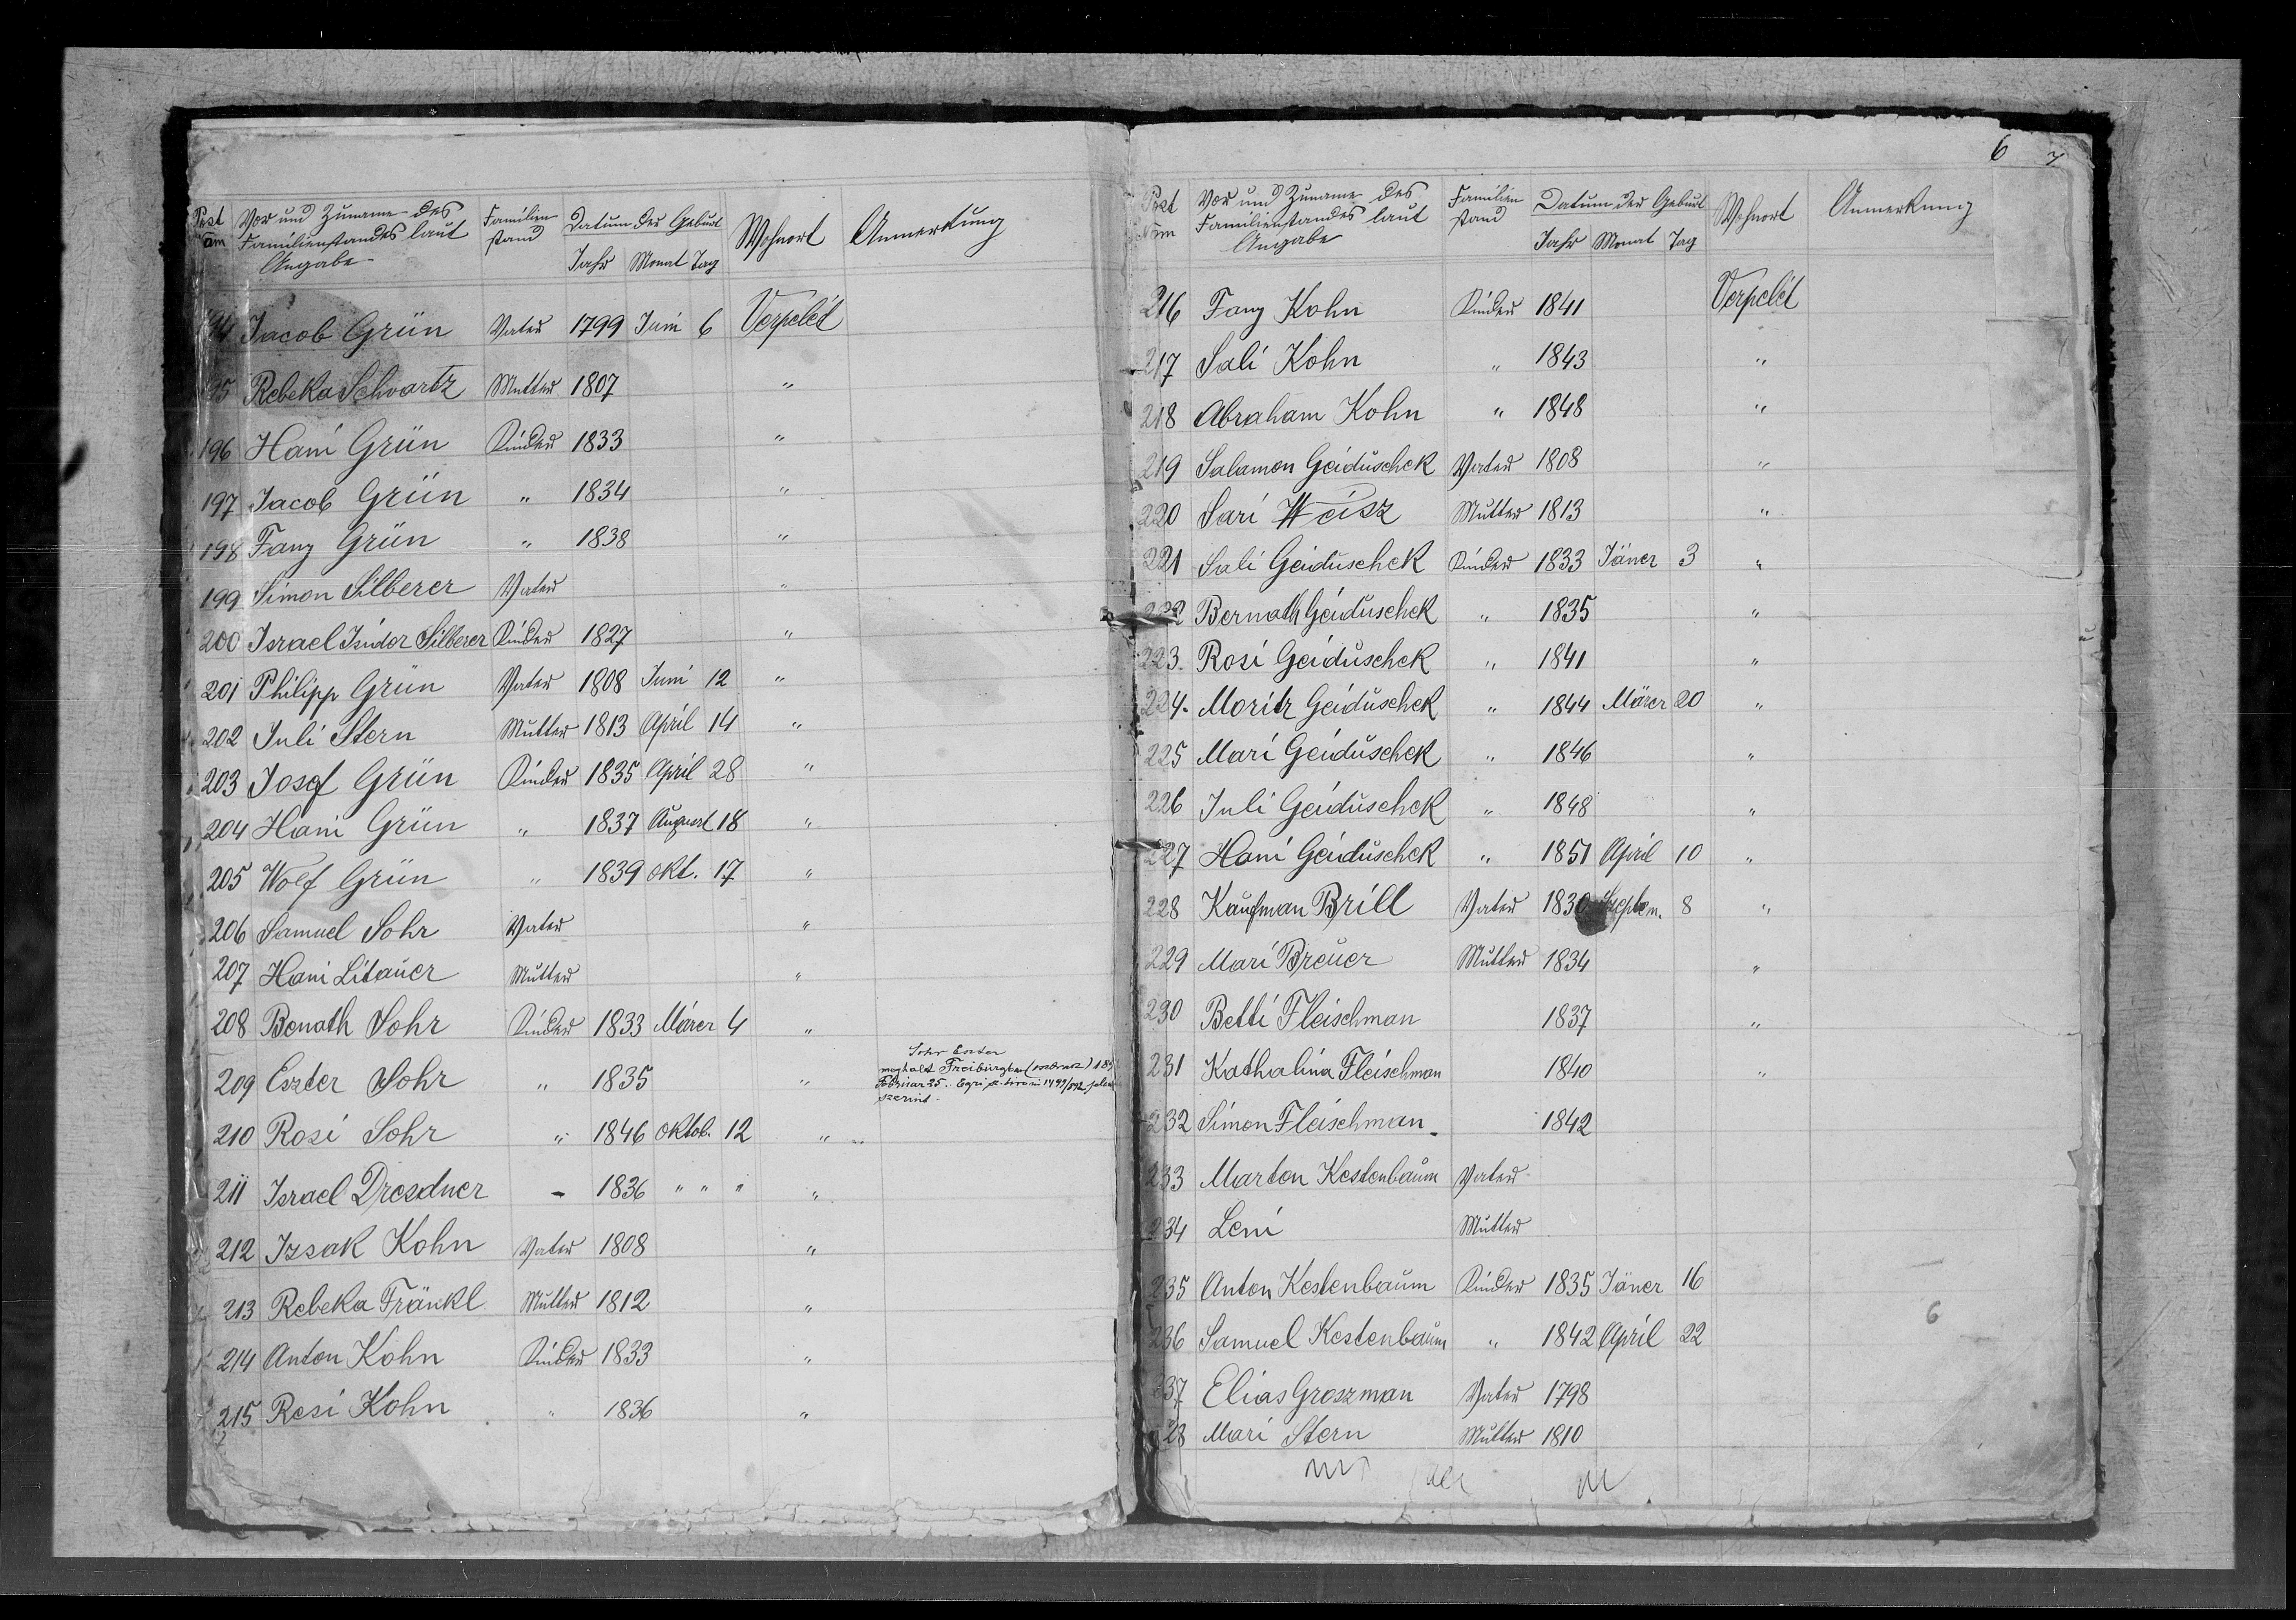 Vor und Zuname des Familienstandes laut Angabe Familien stand Datum der Geburt Jahr Monat Tag Wohnort Anmerkung
194 Jacob Grün Vater 1799 Juni 6 Verpelét
195 Rebeka Schvartz Mutter 1807 "
196 Hani Grün Kinder 1833 "
197 Jacob Grün " 1834 "
198 Fany Grün " 1838 "
199 Simon Silberer Vater "
200 Israel Isidor Silberer Kinder 1827 "
201 Philipp Grün Vater 1808 Juni 12 "
202 Juli Stern Mutter 1813 April 14 "
203 Josef Grün Kinder 1835 April 28 "
204 Hani Grün " 1837 August 18 "
205 Wolf Grün " 1839 Okt. 17 "
206 Samuel Sohr Vater "
207 Hani Litauer Mutter "
208 Benath Sohr Kinder 1833 Märcr 4 "
209 Eszter Sohr " 1835 "
Sohr Eszter
meghalt Freiburgban
Február 25. Egri
szerint.
210 Rosi Sohr " 1846 Oktob. 12 "
211 Israel Dresdner - 1836 " " " "
212 Izsak Kohn Vater 1808 "
213 Rebeka Fränkl Mutter 1812 "
214 Anton Kohn Kinder 1833 "
215 Resi Kohn " 1836 "
6 7
Post Num Vor und Zuname des Familienstandes laut Angabe Familien stand Datum der Geburt Jahr Monat Tag Wohnort Anmerkung
216 Fany Kohn Kinder 1841 Verpelét
217 Sali Kohn " 1843 "
218 Abraham Kohn " 1848 "
219 Salamon Geiduschek Vater 1808 "
220 Sari Weisz Mutter 1813 "
221 Sali Geiduschek Kinder 1833 Jäner 3 "
222 Bernath Geiduschek " 1835 "
223. Rosi Geiduschek " 1841 "
224. Moritz Geiduschek " 1844 Märcr 20 "
225 Mari Geiduschek " 1846 "
226 Juli Geiduschek " 1848 "
227 Hani Geiduschek " 1851 April 10 "
228 Kaufman Brill Vater 1830 Szeptem. 8 "
229 Mari Breuer Mutter 1834 "
230 Betti Fleischman 1837 "
231 Kathalina Fleischman 1840 "
232 Simon Fleischman 1842
233 Marton Kestenbaum Vater
234 Leni Mutter
235 Anton Kestenbaum Kinder 1835 Jäner 16
236 Samuel Kestenbaum " 1842 April 22
6
237 Elias Groszman Vater 1798
28 Mari Stern Mutter 1810